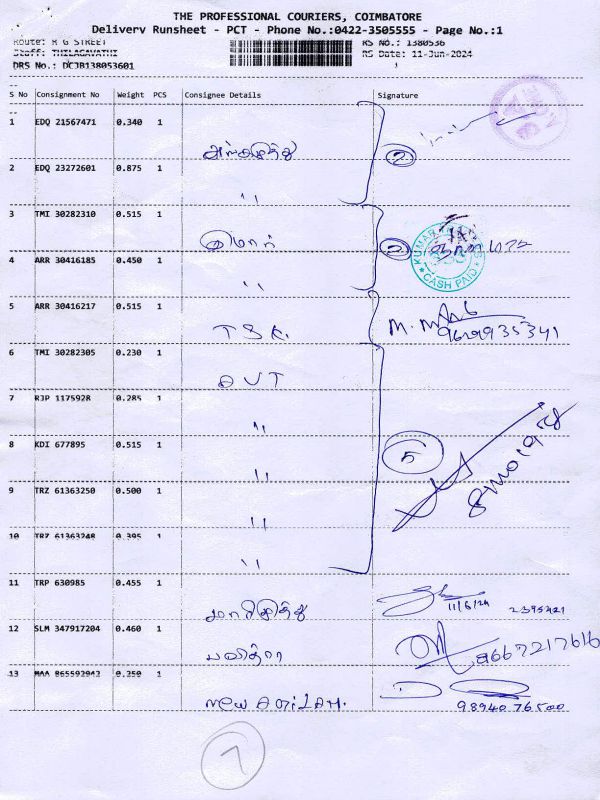 THE PROFESSIONAL COURIERS, COIMBATORE
Delivery Runsheet - PCT - Phone No.:0422-3505555 - Page No.:1
Route: R G STREET RS No.: 1380536
Staff: THILAGAVATHI RS Date: 11-Jun-2024
DRS No.: DCJB138053601
S No Consignment No Weight PCS Consignee Details Signature
1 EDQ 21567471 0.340 1
2
2 EDQ 23272601 0.875 1
"
3 TMI 30282310 0.515 1
2
CASH PAID
4 ARR 30416185 0.450 1
"
5 ARR 30416217 0.515 1
T.S.K. M. 9629935341
6 TMI 30282305 0.230 1
OUT
7 RJP 1175928 0.285 1
"
8 KDI 677895 0.515 1
5
"
9 TRZ 61363250 0.500 1
"
10 TRZ 61363248 0.395 1
"
11 TRP 630985 0.455 1
11/6/24
12 SLM 347917204 0.460 1
பவித்ரா 9667217616
13 MAA 865592942 0.250 1
New 98940 76500
7